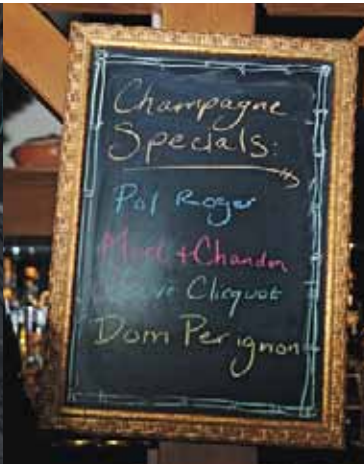 Champagne
Specials:
Pol Roger
Moet + Chandon
Veuve Clicquot
Dom Perignon